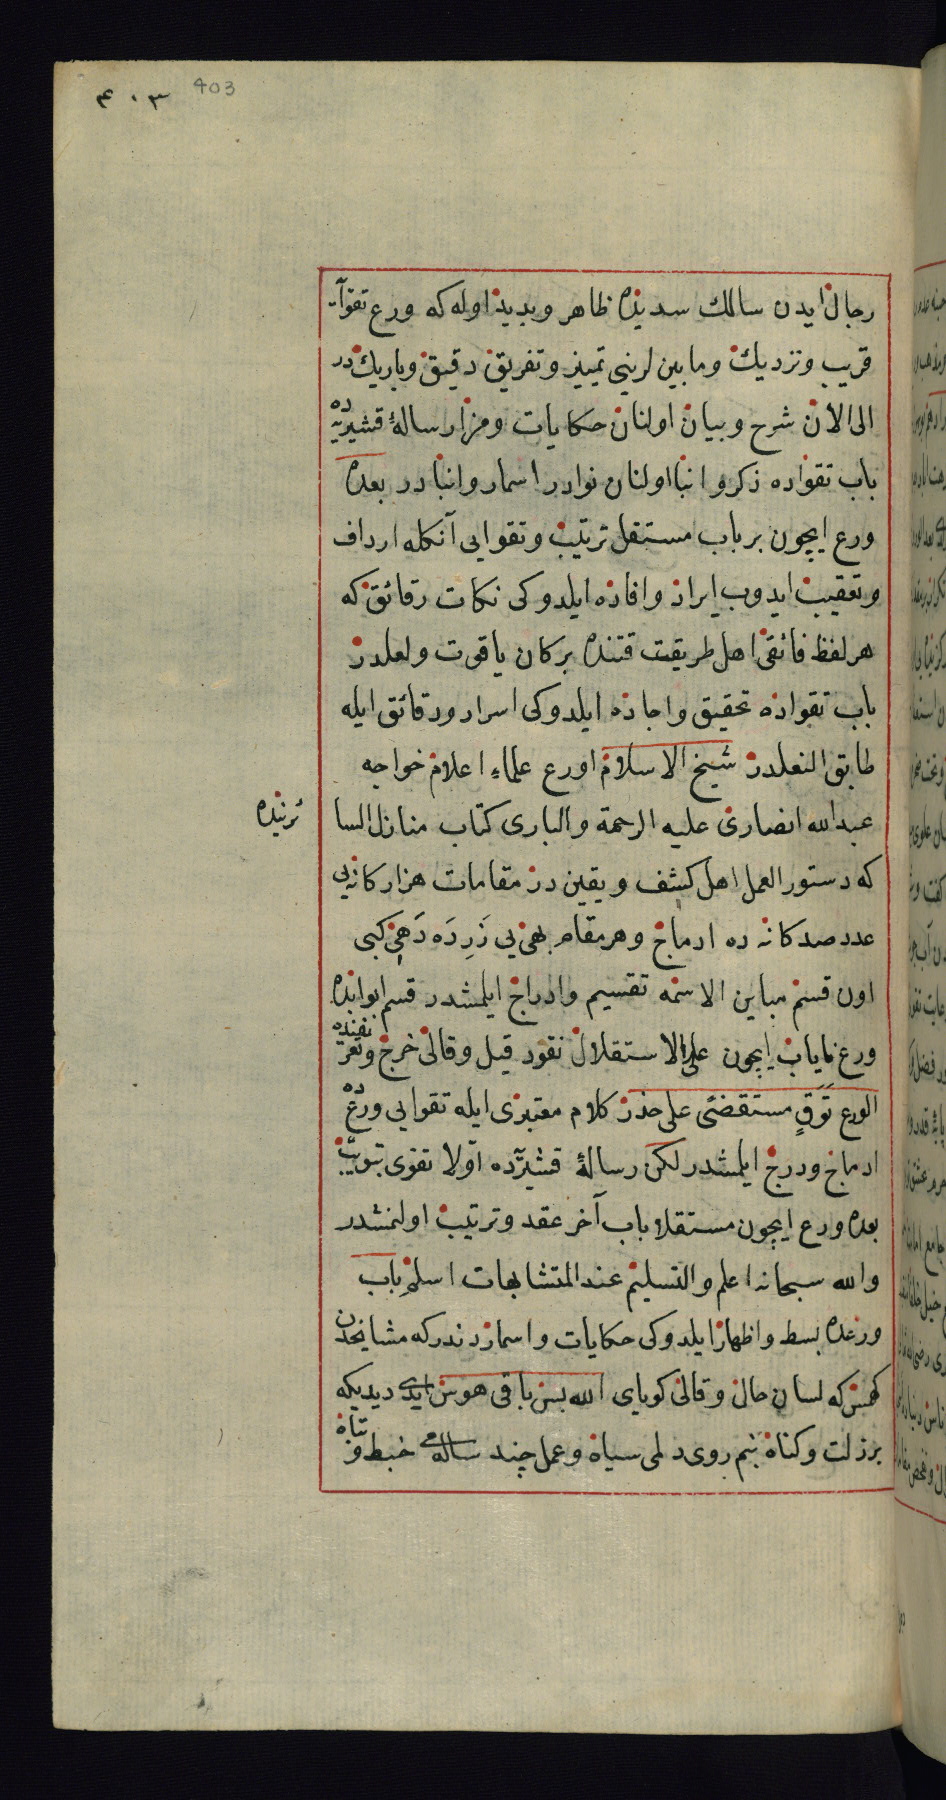 ٤٠٣ 403
رجال ایدن سالك سدیده ظاهر وبدید اوله كه ورع تقوآ
قریب ونزدیك وما بین لرینی تمییز وتفریق دقیق وباریك در
الی الان شرح وبیان اولنان حكایات ومزار رسالۀ قشیریه ده
باب تقواده ذكر وانبا اولنان نوادر اسمار وانبا در بعده
ورع ایچون بر باب مستقل ترتیب وتقوایی آنكله ارداف
وتعقیب ایدوب ایراد وافاده ایلدوكی نكات رقائق كه
هر لفظ فائقی اهل طریقت قتنده بر كان یاقوت ولعلدر
باب تقواده تحقیق واجاده ایلدوكی اسرار ودقائق ایله
طابق النعلدر شیخ الاسلام اورع علماء اعلام خواجه
عبدالله انصاری علیه الرحمة والباری كتاب منازل السا
ئرینده
كه دستور العمل اهل كشف ویقین در مقامات هزار كانه یی
عدد صد كانه ده ادماج وهر مقام بهی یی زر ده دهی كبی
اون قسم مباین الاسمه تقسیم وادراج ایلمشدر قسم ابوابده
ورع نایاب ایچون علی الاستقلال نقود قیل وقالی خرج
الورع توق مستقصی علی حذر كلام معتبری ایله تقوایی ورعده
ادماج ودرج ایلمشدر لكن رسالۀ قشیریّده اوّلا تقوی تبویب
بعده ورع ایچون مستقلا باب آخر عقد وترتیب اولنمشدر
والله سبحانه اعلم والتسلیم عند المتشابهات اسلم باب
ورعده بسط واظهار ایلدوكی حكایات واسماردندر كه مشایخدن
كهمس كه لسان حال وقالی كویای الله بس باقی هوس ایدی دیدیكه
بر زلت وكناه بنم روی دلمی سیاه وعمل چند ساله می خبط وتباه